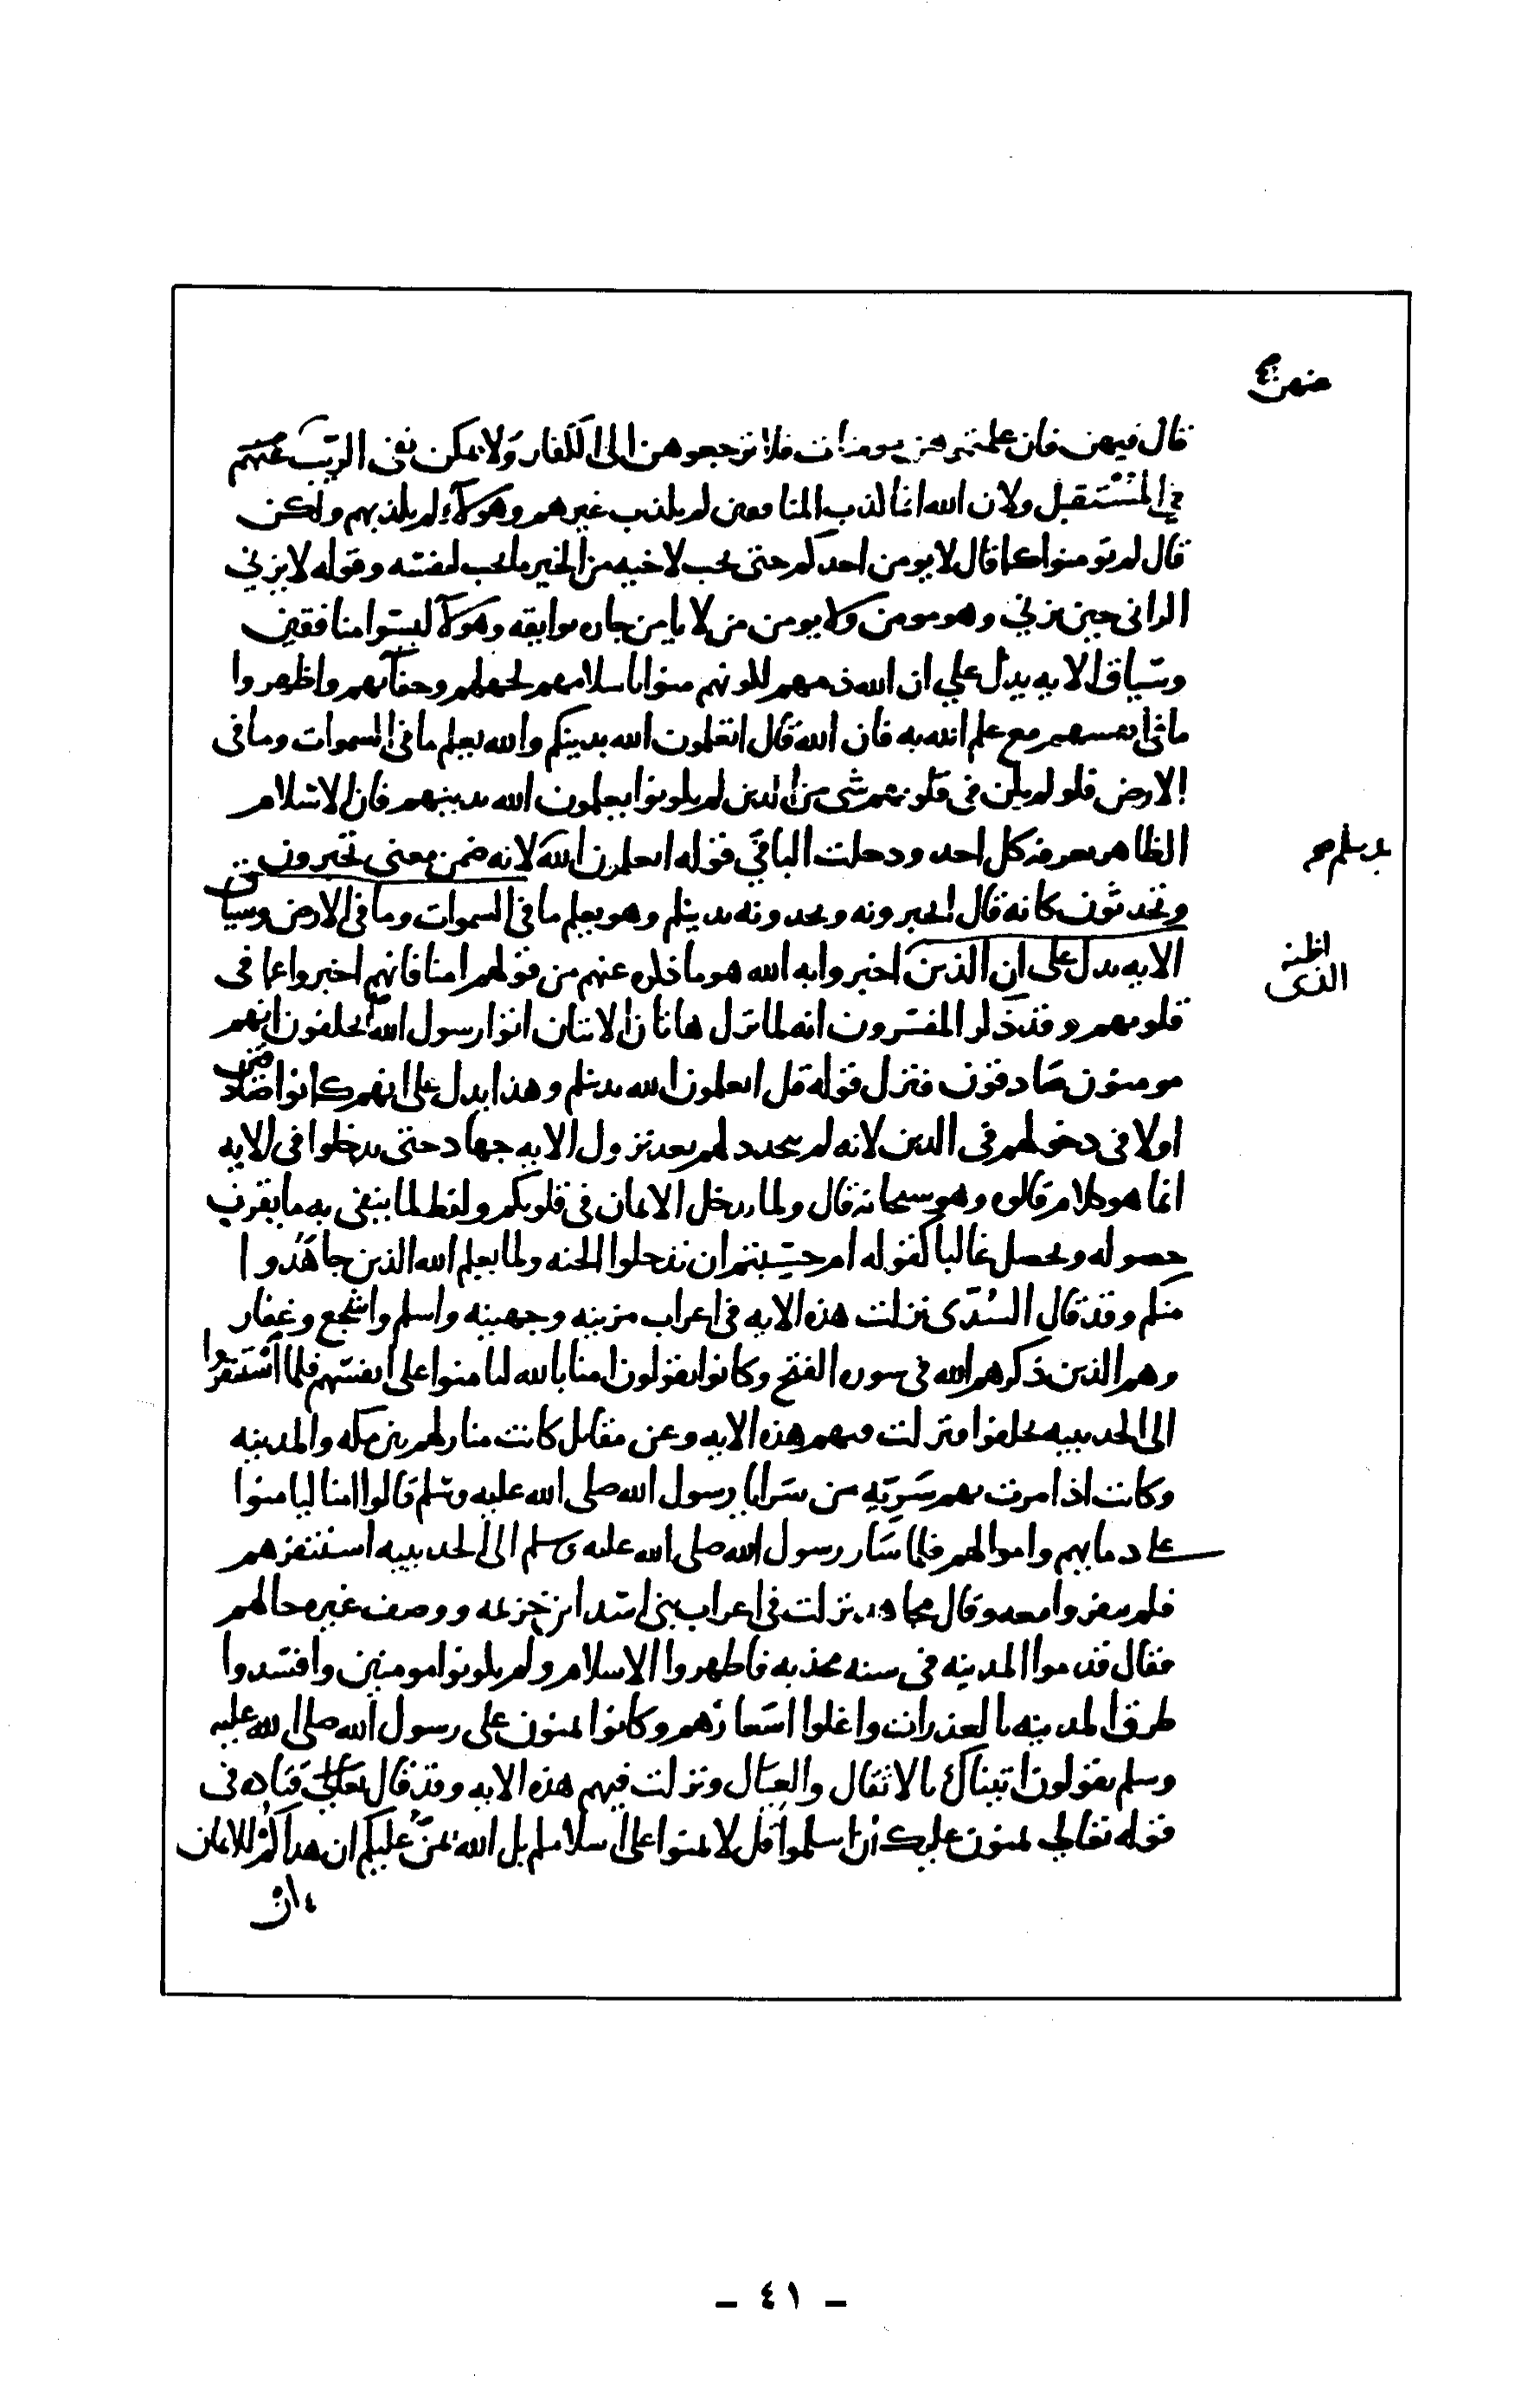 قال فيهن فان علمتموهن مومنات فلا ترجعوهن الى الكفار ولا يمكن نفى الريب عنهم
في المستقبل ولان الله انما كذب المنافقين لم يكذب غيرهم وهولآء لم يكذبهم ولكن
قال لم تومنوا كما قال لا يومن احدكم حتى يحب لاخيه من الخير ما يحب لنفسه وقوله لا يزني
الزانى حين يزني وهو مومن ولا يومن من لا يامن جاره بوايقه وهولآ ليسوا منافقين
وسياق الايه يدل علي ان الله ذمهم لكونهم منوا باسلامهم لجهلهم وجفآيهم واظهروا
ما فى انفسهم مع علم الله به فان الله قال اتعلمون الله بدينكم والله يعلم ما فى السموات وما فى
الارض فلو لم يكن فى قلوبهم شى من الدين لم يكونوا يعلمون الله بدينهم فان الاسلام
الظاهر يعرفه كل احد ودخلت البآ فى قوله اتعلمون الله لانه ضمن معنى تخبرون
وتحدثون كانه قال اتخبرونه وتحدثونه بدينكم وهو يعلم ما فى السموات وما فى الارض وسياق
الايه يدل على ان الذين اخبروا به الله هو ما ذكره عنهم من قولهم امنا فانهم اخبروا عما فى
قلوبهم وقد ذكر المفسرون انه لما نزل هاتان الايتان اتوا رسول الله يحلفون انهم
مومنون صادقون فنزل قوله قل اتعلمون الله بدينكم وهذا يدل على انهم كانوا صادقين
اولا فى دخولهم فى الدين لانه لم يتجدد لهم بعد نزول الايه جهاد حتى يدخلوا فى الايه
انما هو كلام قالوه وهو سبحانه قال ولما يدخل الايمان فى قلوبكم ولفظ لما ينفى به ما يقرب
حصوله ويحصل غالبا كقوله ام حسبتم ان تدخلوا الجنه ولما يعلم الله الذين جاهدوا
منكم وقد قال السدى نزلت هذه الايه فى اعراب مزينه وجهينه واسلم واشجع وغفار
وهم الذين ذكرهم الله فى سوره الفتح وكانوا يقولون امنا بالله ليامنوا على انفسهم فلما استنفروا
الى الحديبيه تخلفوا فنزلت فيهم هذه الايه وعن مقاتل كانت منازلهم بين مكه والمدينه
وكانت اذا مرت بهم سريه من سرايا رسول الله صلى الله عليه وسلم قالوا امنا ليامنوا
على دمايهم واموالهم فلما سار رسول الله صلى الله عليه وسلم الى الحديبيه استنفرهم
فلم ينفروا معه وقال مجاهد نزلت فى اعراب بنى اسد ابن خزيمه ووصف غيره حالهم
فقال قدموا المدينه فى سنه مجدبه فاظهروا الاسلام ولم يكونوا مومنين وافسدوا
طرق المدينه بالعذرات واغلوا اسعارهم وكانوا يمنون على رسول الله صلى الله عليه
وسلم يقولون اتيناك بالاثقال والعيال ونزلت فيهم هذه الايه وقد قال قتاده فى
قوله تعالى يمنون عليك ان اسلموا قل لا تمنوا على اسلامكم بل الله يمن عليكم ان هداكم للايمان
اظنه
الذى
- ٤١ -